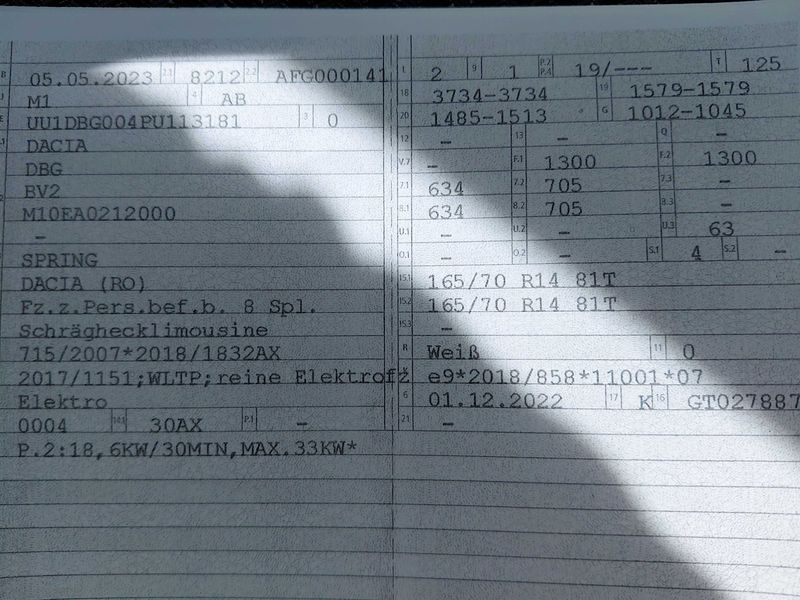 B 05.05.2023 2.1 8212 2.2 AFG000141
J M1 4 AB
E UU1DBG004PU113181 3 0
DACIA
DBG
BV2
M10EA0212000
–
SPRING
DACIA (RO)
Fz.z.Pers.bef.b. 8 Spl.
Schräghecklimousine
715/2007*2018/1832AX
2017/1151;WLTP;reine Elektrofz
Elektro
0004 14.1 30AX P.1 –
P.2:18,6KW/30MIN,MAX.33KW*
L 2 9 1 P.2 P.4 19/--- T 125
18 3734-3734 19 1579-1579
20 1485-1513 G 1012-1045
12 – 13 – Q –
V.7 – F.1 1300 F.2 1300
7.1 634 7.2 705 7.3 –
8.1 634 8.2 705 8.3 –
U.1 – U.2 – U.3 63
O.1 – O.2 – S.1 4 S.2 –
15.1 165/70 R14 81T
15.2 165/70 R14 81T
15.3 –
R Weiß 11 0
K e9*2018/858*11001*07
6 01.12.2022 17 K 16 GT027887
21 –